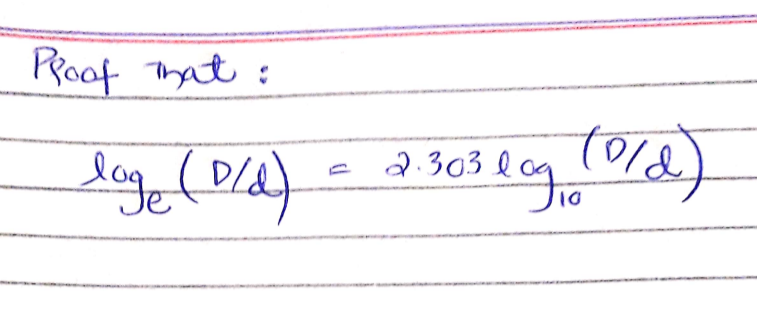 Proof that :
log_e (D/d) = 2.303 log_10 (D/d)